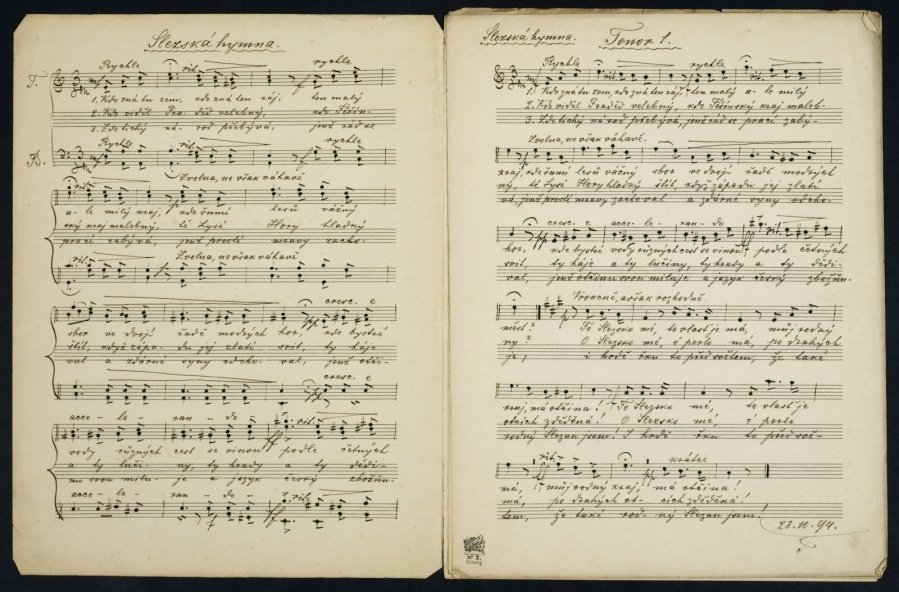 Slezská hymna.
Rychle rit. rychle
T.
1. Kdo zná tu zem, kdo zná ten ráj, ten malý
2. Kdo viděl Praděd velebný, kdo Těšín-
3. Zde tichý ná- rod přebývá, jenž rád se
Rychle rit. rychle
B.
rit. Zvolna, ne však váhavě
a- le milý kraj, kde šumí lesů vážný
ský kraj malebný, té Lysé Hory hladký
prací zabývá, jenž prosté mravy zacho-
rit. Zvolna, ne však váhavě
cresc. e
sbor ve dvojí řadě modrých hor, kde bystré
štít, když zápa- du jej zlatí svit, ty háje
val a zdárné syny odcho- val, jenž otči-
cresc. e
acce- le- ran- do rit.
vody různých cest se vinou podle četných
a ty luči- ny, ty hrady a ty dědi-
nu svou milu- je a jazyk český zbožňu-
acce- le- ran- do rit.
Slezská hymna. Tenor 1.
Rychle rit. rychle
1. Kdo zná tu zem, kdo zná ten ráj, ten malý a- le milý
2. Kdo viděl Praděd velebný, kdo Těšínský kraj maleb-
3. Zde tichý národ přebývá, jenž rád se prací zabý-
Zvolna, ne však váhavě.
kraj, kde šumí lesů vážný sbor ve dvojí řadě modrých
ný, té Lysé Hory hladký štít, když západu jej zlatí
vá, jenž prosté mravy zachoval a zdárné syny odcho-
cresc. e acce- le- ran- do rit.
hor, kde bystré vody různých cest se vinou podle četných
svit, ty háje a ty lučiny, ty hrady a ty dědi-
val, jenž otčinu svou miluje a jazyk český zbožňu-
Vroveně, avšak rozhodně.
měst? To Slezsko mé, to vlast je má, můj rodný
ny? O Slezsko mé, ó perlo má, po drahých
je; i hrdě řku to před světem, že také
kraj, má otčina! To Slezsko mé, to vlast je
otcích zděděná! O Slezsko mé, ó perlo
rodný Slezan jsem! I hrdě řku to před svě-
rit. krátce
má, můj rodný kraj, má otčina!
má, po drahých ot- cích zděděná!
tem, že také rod- ný Slezan jsem!
28.10.94.